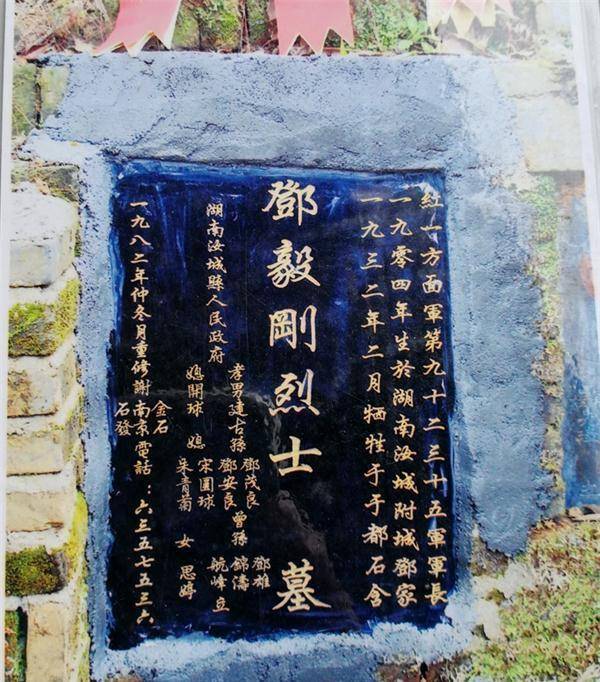 紅一方面軍第九十二三十五軍軍長
一九零四年生於湖南汝城附城鄧家
一九三二年二月牺牲于于都石含
鄧毅剛烈士墓
孝男建古孫
鄧茂良
鄧安良
曾孫
鄧雄
錦濤
航峰立
媳開球
媳
宋圓球
朱青蘭
女
思婷
湖南汝城縣人民政府
一九八二年仲冬月重修謝南京電話：六三五七五三六
金石
石發